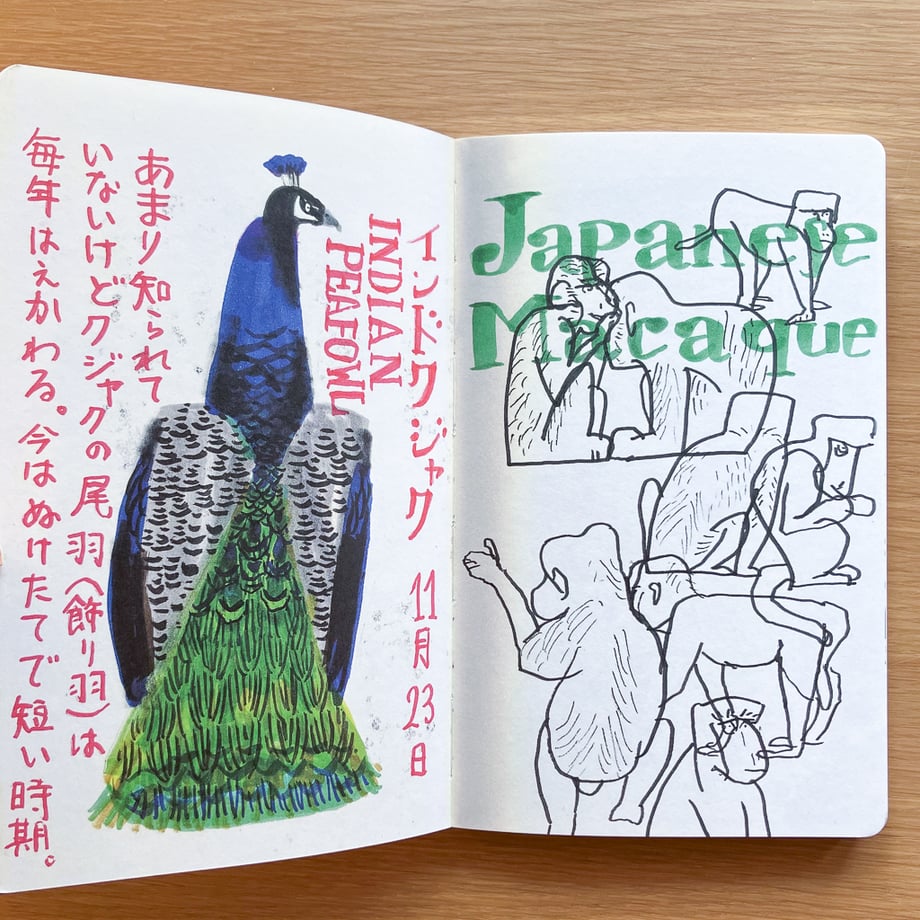 インドクジャク 11月23日
INDIAN
PEAFOWL
あまり知られて
いないけどクジャクの尾羽(飾り羽)は
毎年はえかわる。今はぬけたてで短い時期。
Japanese
Macaque